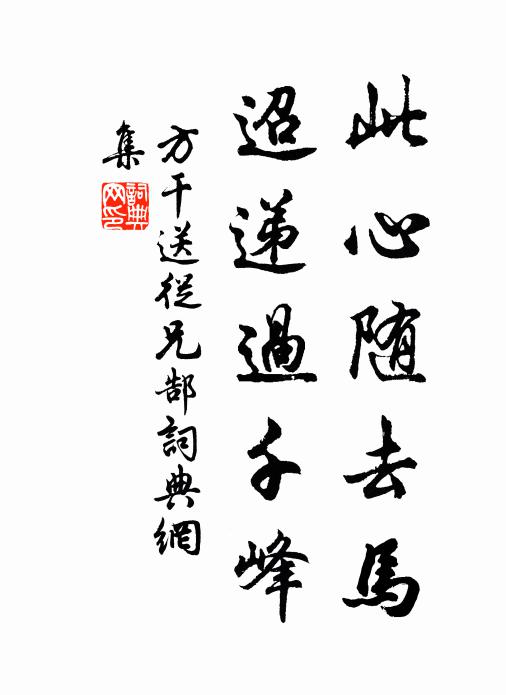 此心随去馬
迢递過千峰
方干送從兄郜詞典網
集
詞典网印